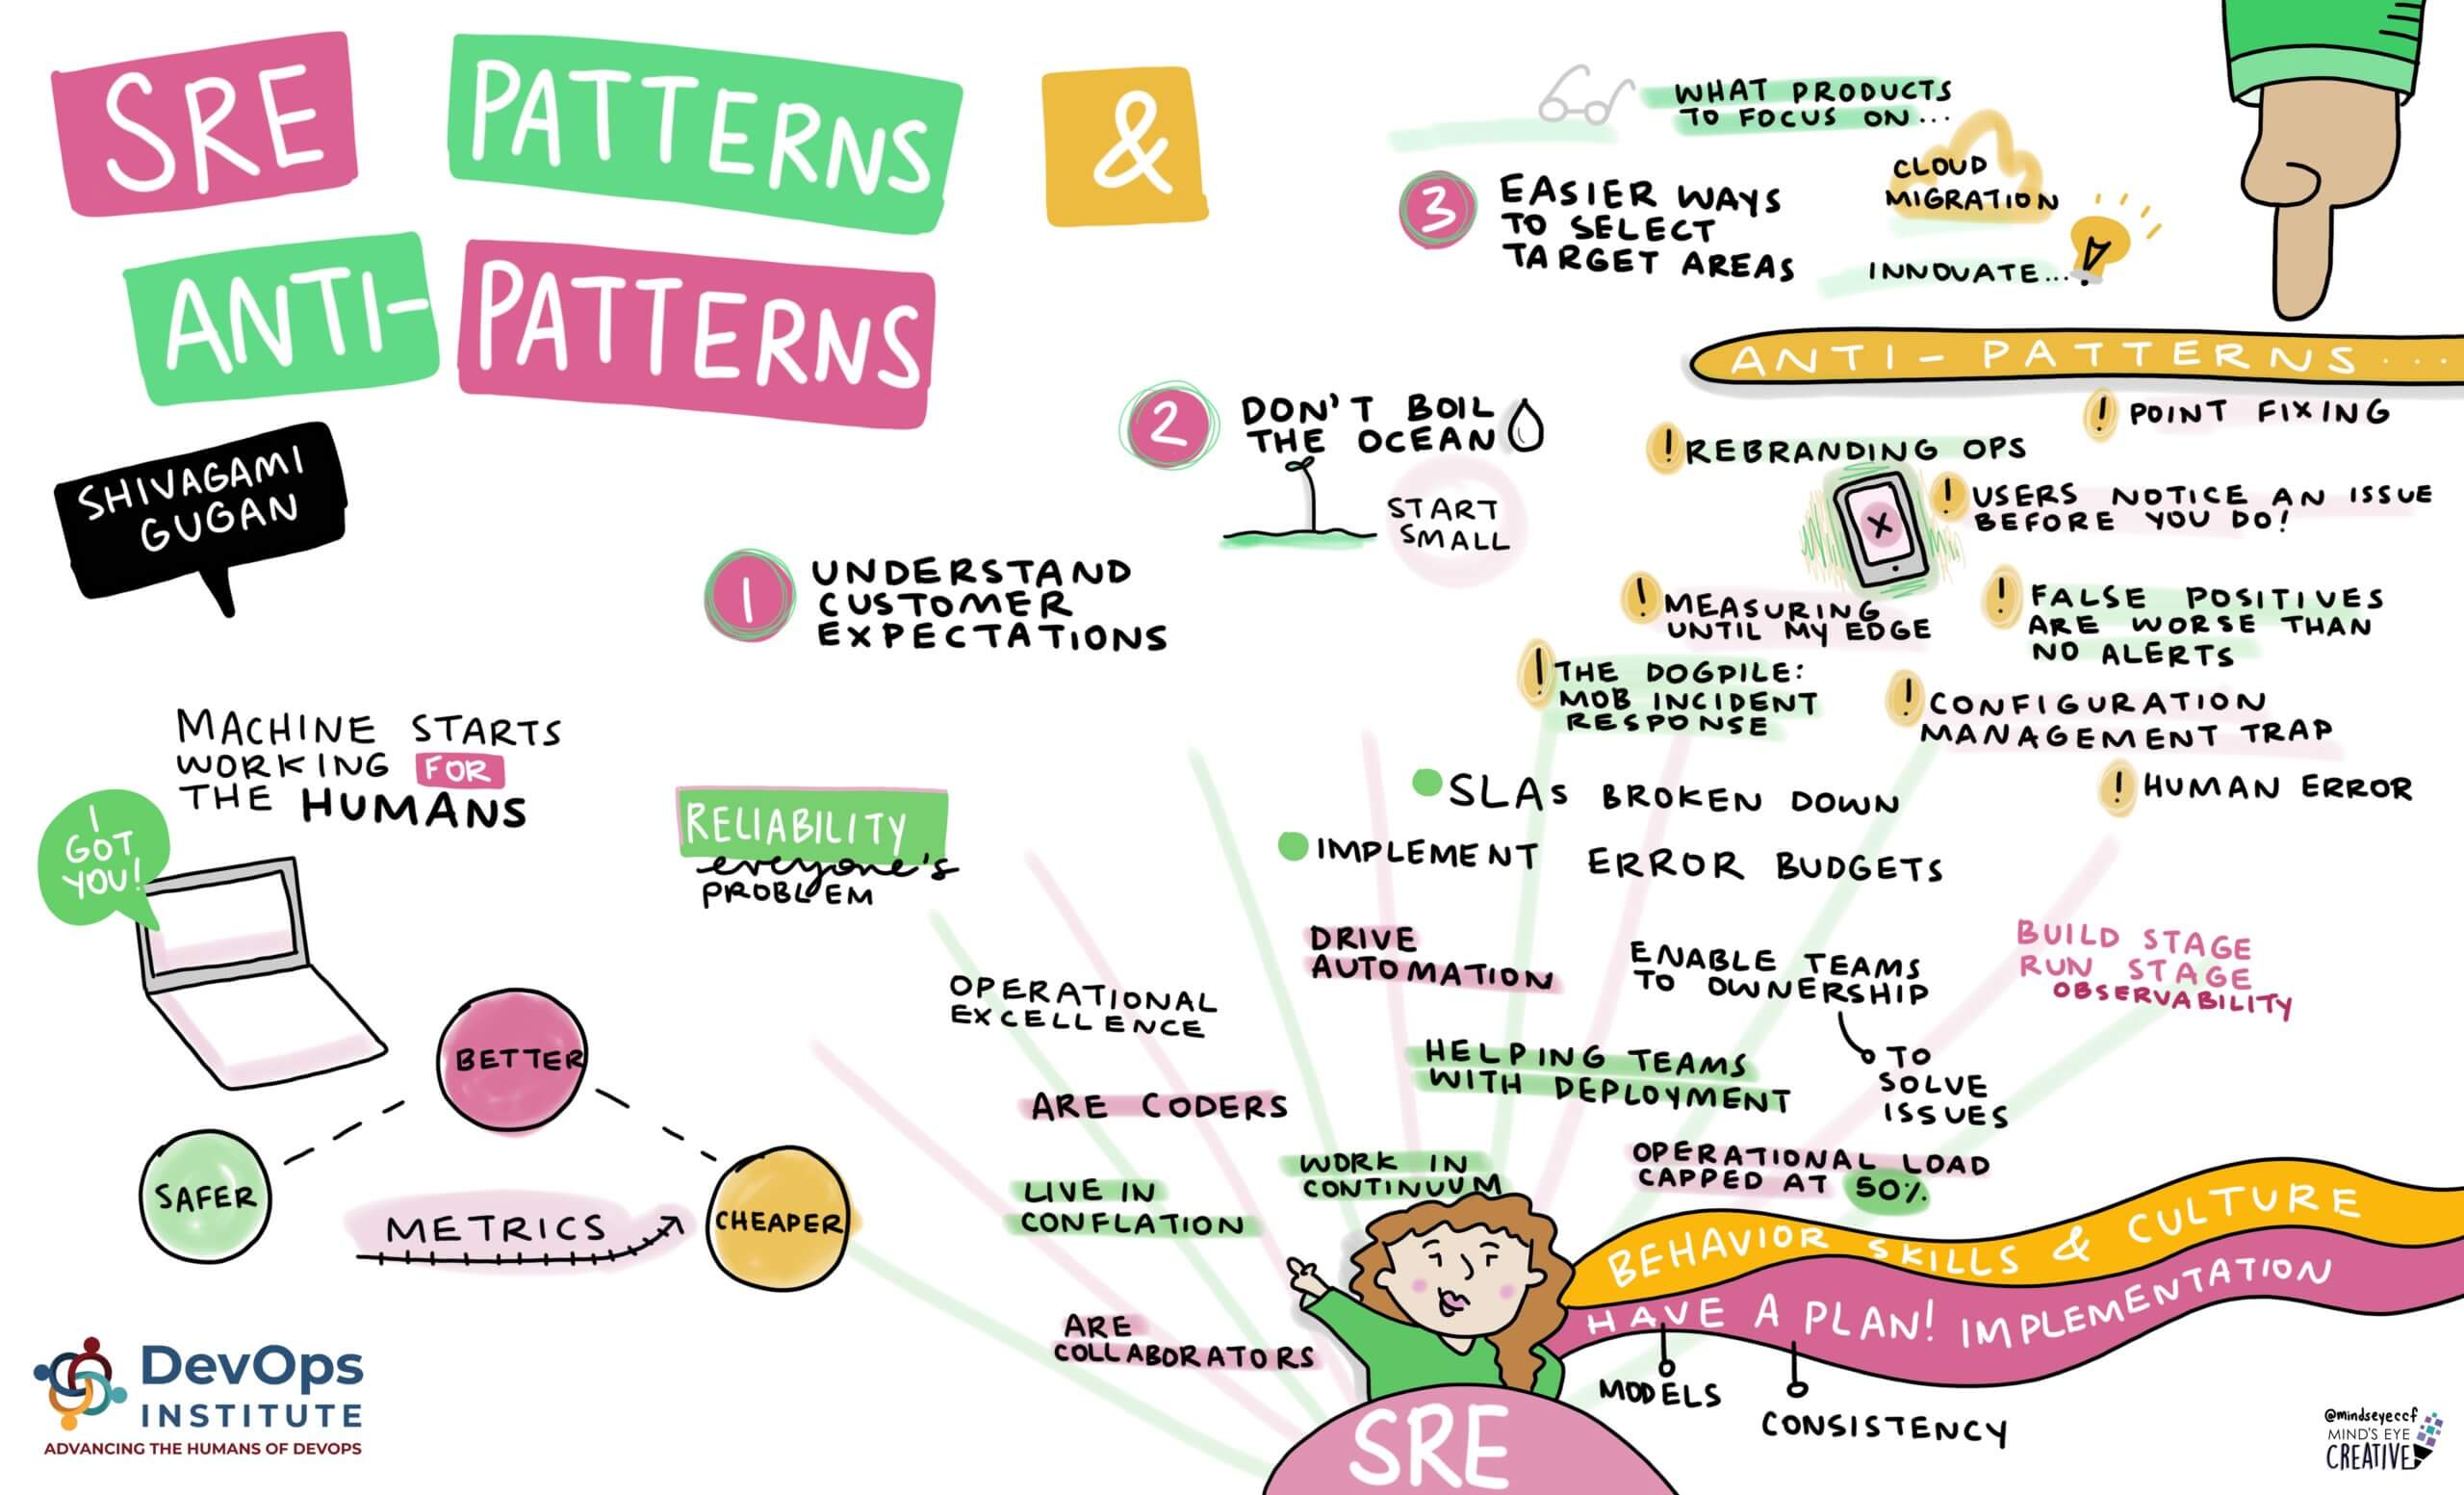 SRE PATTERNS &
ANTI-PATTERNS
SHIVAGAMI
GUGAN
MACHINE STARTS
WORKING FOR
THE HUMANS
I
GOT
YOU!
RELIABILITY
everyone's
PROBLEM
BETTER
SAFER
CHEAPER
METRICS
1
UNDERSTAND
CUSTOMER
EXPECTATIONS
2
DON'T BOIL
THE OCEAN
START
SMALL
3
EASIER WAYS
TO SELECT
TARGET AREAS
WHAT PRODUCTS
TO FOCUS ON...
CLOUD
MIGRATION
INNOVATE...
ANTI-PATTERNS...
! POINT FIXING
! REBRANDING OPS
X
! USERS NOTICE AN ISSUE
BEFORE YOU DO!
! MEASURING
UNTIL MY EDGE
! FALSE POSITIVES
ARE WORSE THAN
NO ALERTS
! THE DOGPILE:
MOB INCIDENT
RESPONSE
! CONFIGURATION
MANAGEMENT TRAP
! HUMAN ERROR
SLAs BROKEN DOWN
IMPLEMENT ERROR BUDGETS
DRIVE
AUTOMATION
ENABLE TEAMS
TO OWNERSHIP
TO
SOLVE
ISSUES
BUILD STAGE
RUN STAGE
OBSERVABILITY
OPERATIONAL
EXCELLENCE
HELPING TEAMS
WITH DEPLOYMENT
ARE CODERS
WORK IN
CONTINUUM
OPERATIONAL LOAD
CAPPED AT 50%
LIVE IN
CONFLATION
ARE
COLLABORATORS
BEHAVIOR SKILLS & CULTURE
HAVE A PLAN! IMPLEMENTATION
MODELS
CONSISTENCY
SRE
DevOps
INSTITUTE
ADVANCING THE HUMANS OF DEVOPS
@mindseyeccf
MIND'S EYE
CREATIVE